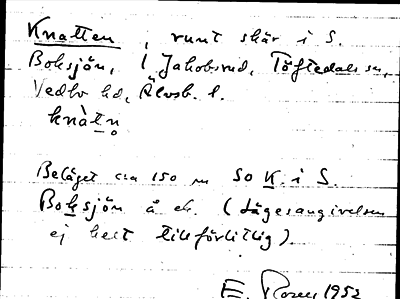 Knatten, runt skär i S.
Boksjön, 1 Jakobsrud, Töftedals sn,
Vedbo hd, Älvsb. l.
knàtn̥
Beläget ca 150 m SO K. i S.
Boksjön å ek. (Lägesangivelsen
ej helt tillförlitlig).
E. Rosell 1952